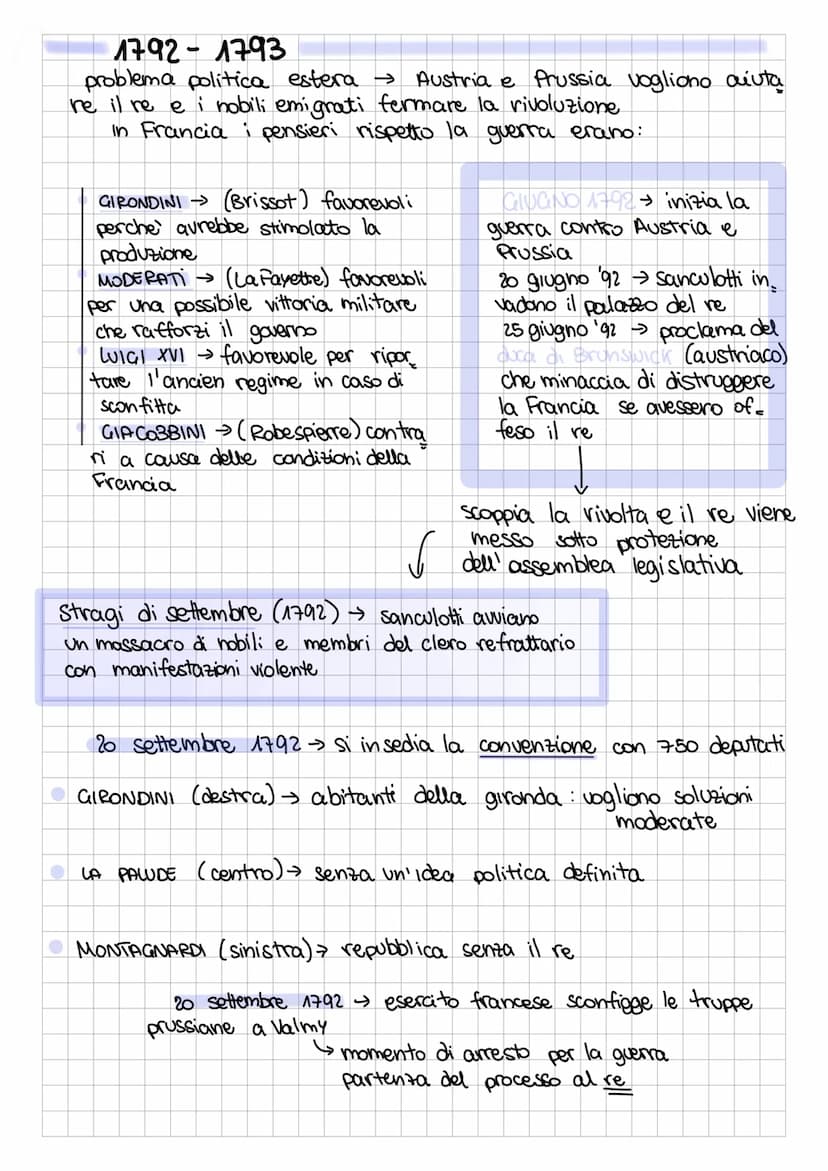 1792 - 1793
problema politica estera → Austria e Prussia vogliono aiuta
re il re e i nobili emigrati fermare la rivoluzione
in Francia i pensieri rispetto la guerra erano:
GIRONDINI → (Brissot) favorevoli
perche' avrebbe stimolato la
produzione
MODERATI → (La Fayette) favorevoli
per una possibile vittoria militare
che rafforzi il governo
LUIGI XVI → favorevole per ripor
tare l'ancien regime in caso di
sconfitta
GIACOBBINI → (Robespierre) contra
ri a causa delle condizioni della
Francia
GIUGNO 1792 → inizia la
guerra contro Austria e
Prussia
20 giugno '92 → sanculotti in
vadono il palazzo del re
25 giugno '92 → proclama del
duca di Brunswick (austriaco)
che minaccia di distruggere
la Francia se avessero of
feso il re
scoppia la rivolta e il re viene
messo sotto protezione
dell'assemblea legislativa
Stragi di settembre (1792) → sanculotti avviano
un massacro di nobili e membri del clero refrattario
con manifestazioni violente
20 settembre 1792 → si insedia la convenzione con 750 deputati
GIRONDINI (destra) → abitanti della gironda : vogliono soluzioni
moderate
LA PALUDE (centro) → senza un'idea politica definita
MONTAGNARDI (sinistra) → repubblica senza il re
20 settembre 1792 → esercito francese sconfigge le truppe
prussiane a Valmy
↳ momento di arresto per la guerra
partenza del processo al re